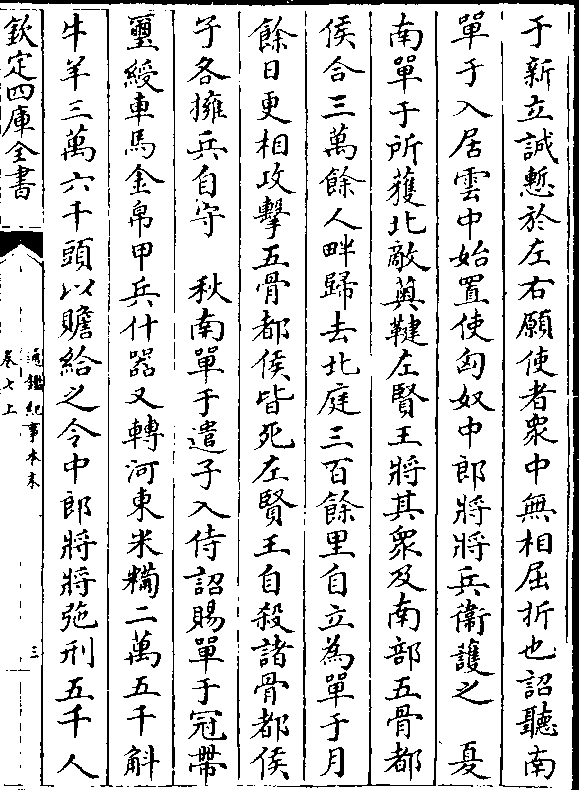 于新立誠慙於左右願使者衆中無相屈折也詔聽南
單于入居雲中始置使匈奴中郎將將兵衞護之　夏
南單于所獲北敵薁鞬左賢王將其衆及南部五骨都
侯合三萬餘人畔歸去北庭三百餘里自立為單于月
餘日更相攻擊五骨都侯皆死左賢王自殺諸骨都侯
子各擁兵自守　秋南單于遣子入侍詔賜單于冠帶
璽綬車馬金帛甲兵什器又轉河東米糒二萬五千斛
牛羊三萬六千頭以贍給之令中郎將將弛刑五千人
欽定四庫全書
通鑑紀事本末
卷七上
三